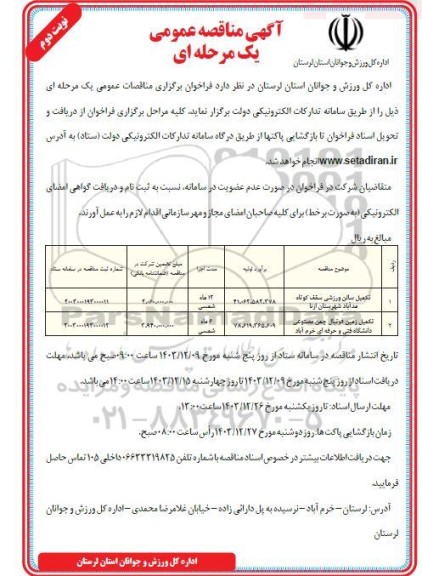 نوبت دوم
آگهی مناقصه عمومی
یک مرحله ای
اداره کل ورزش و جوانان استان لرستان
اداره کل ورزش و جوانان استان لرستان در نظر دارد فراخوان برگزاری مناقصات عمومی یک مرحله ای
ذیل را از طریق سامانه تدارکات الکترونیکی دولت برگزار نماید. کلیه مراحل برگزاری فراخوان از دریافت و
تحویل اسناد فراخوان تا بازگشایی پاکتها از طریق درگاه سامانه تدارکات الکترونیکی دولت (ستاد) به آدرس
www.setadiran.ir انجام خواهد شد.
متقاضیان شرکت در فراخوان در صورت عدم عضویت در سامانه، نسبت به ثبت نام و دریافت گواهی امضای
الکترونیکی (به صورت بر خط) برای کلیه صاحبان امضای مجاز و مهر سازمانی اقدام لازم را به عمل آورند.
مبالغ به ریال
ردیف موضوع مناقصه برآورد اولیه مدت اجرا مبلغ تضمین شرکت در مناقصه (ضمانتنامه بانکی) شماره ثبت مناقصه در سامانه ستاد
۱ تکمیل سالن ورزشی سقف کوتاه شهرستان ازنا ۱۲ ماه شمسی
۲ تکمیل زمین فوتبال چمن مصنوعی دانشگاه فنی و حرفه ای خرم آباد ۷۸,۶۱۹,۲۶۵,۶۰۹ ۶ ماه شمسی ۳,۹۴۰,۰۰۰,۰۰۰
تاریخ انتشار مناقصه در سامانه ستاد از روز پنج شنبه مورخ ۱۴۰۳/۱۲/۰۹ ساعت ۰۹:۰۰ صبح می باشد. مهلت
دریافت اسناد از روز پنج شنبه مورخ ۱۴۰۳/۱۲/۰۹ تا روز چهارشنبه ۱۴۰۳/۱۲/۱۵ ساعت ۱۴:۰۰ می باشد.
مهلت ارسال اسناد: تا روز یکشنبه مورخ ۱۴۰۳/۱۲/۲۶ ساعت ۱۳:۰۰
زمان بازگشایی پاکت ها: روز دوشنبه مورخ ۱۴۰۳/۱۲/۲۷ راس ساعت ۰۸:۰۰ صبح.
جهت دریافت اطلاعات بیشتر در خصوص اسناد مناقصه با شماره تلفن ۰۶۶۳۳۲۱۹۸۲۵ داخلی ۱۰۵ تماس حاصل
فرمایید.
آدرس: لرستان – خرم آباد – نرسیده به پل دارائی زاده – خیابان غلامرضا محمدی – اداره کل ورزش و جوانان
لرستان
اداره کل ورزش و جوانان استان لرستان